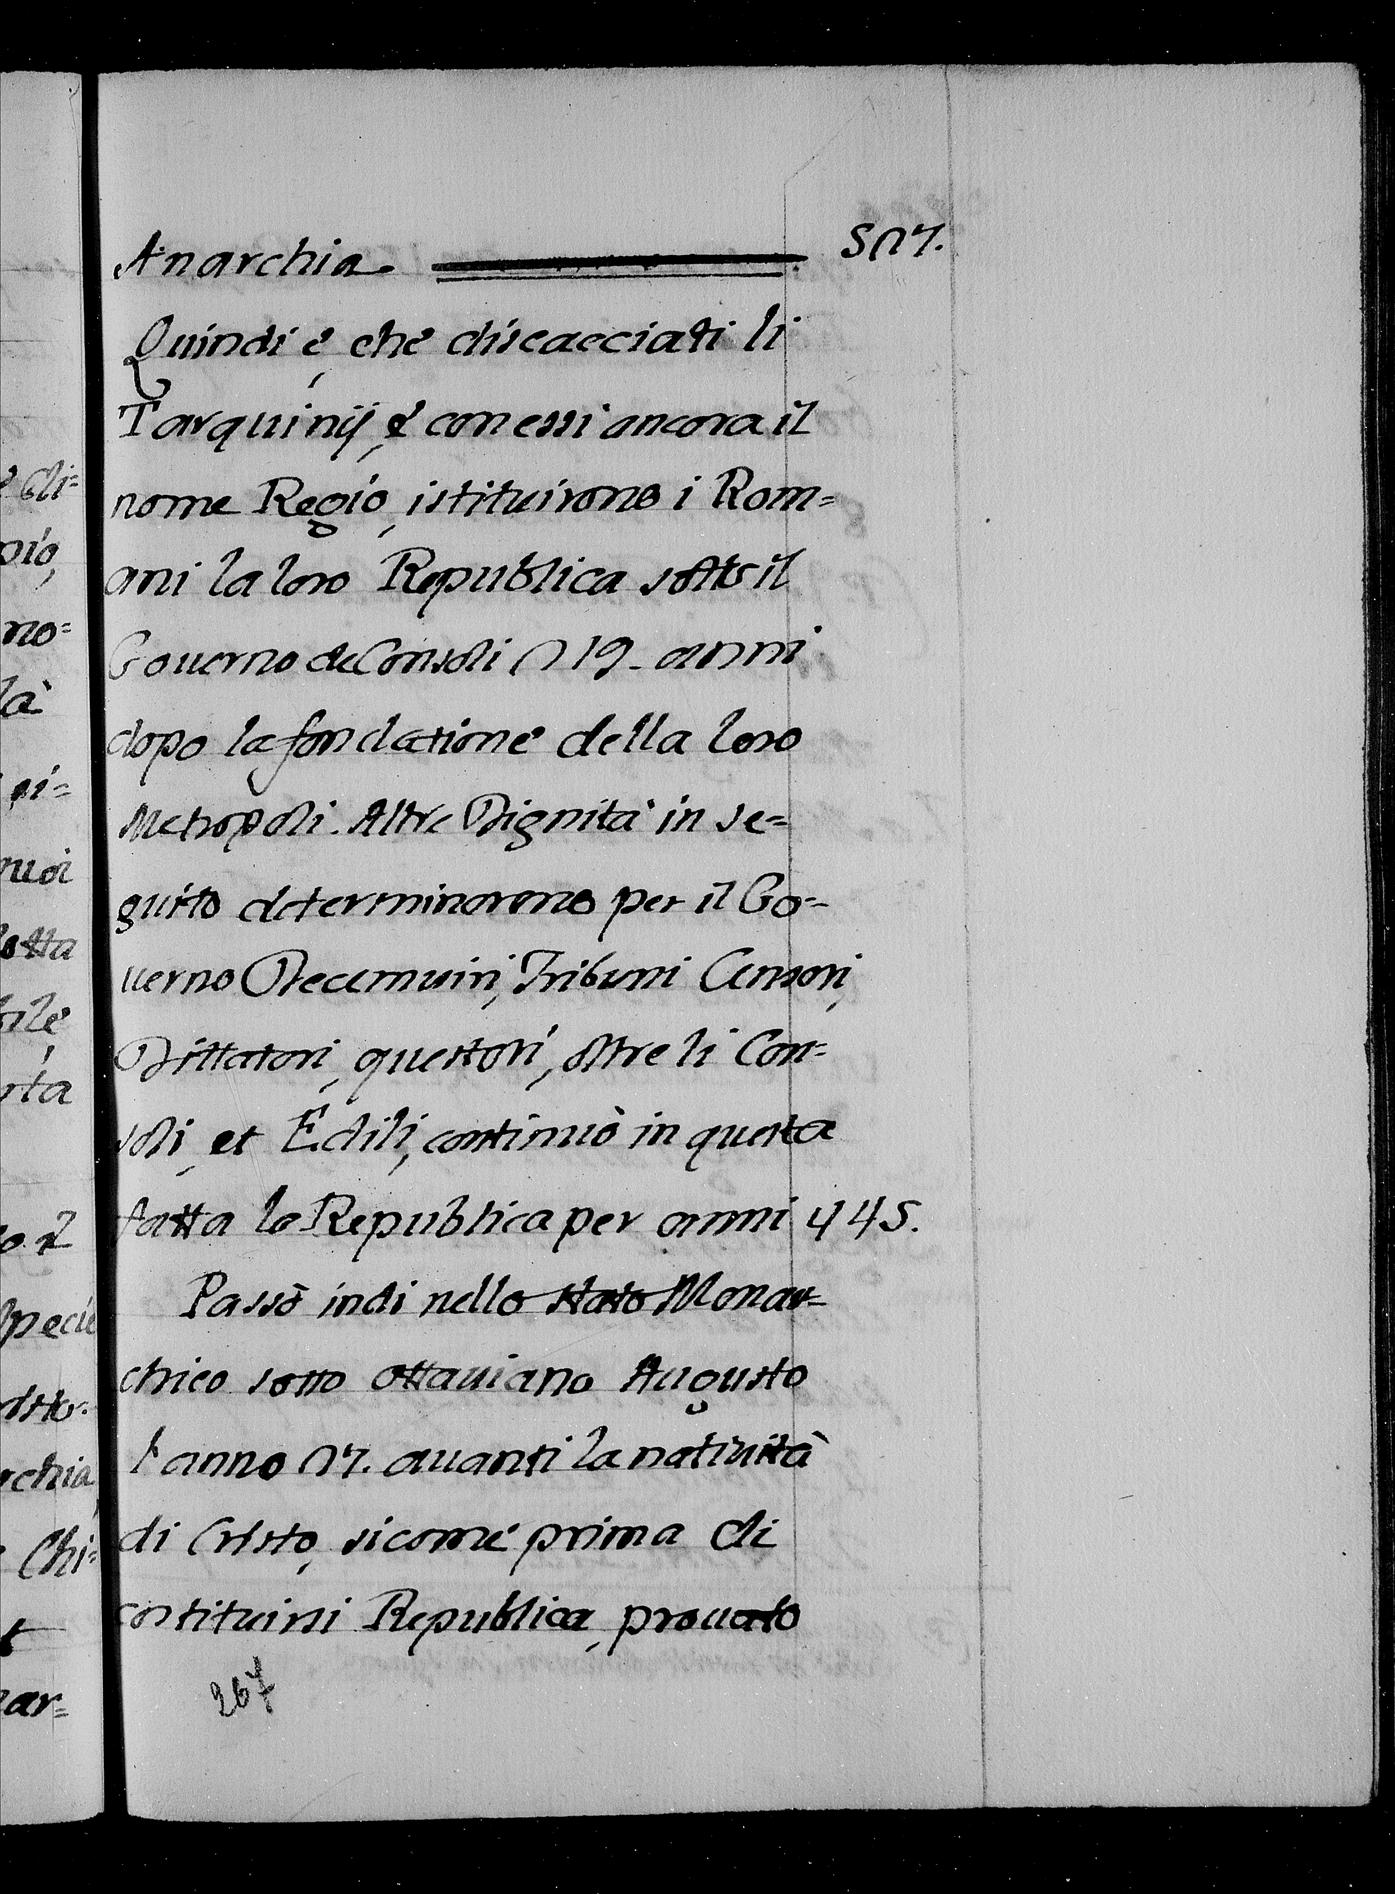 527.
Anarchia.
Quindi è, che discacciati li
Tarquinij, e con essi ancora il
nome Regio, istituirono i Rom=
ani la loro Republica sotto il
Gouerno de Consoli 219. anni
dopo la fondatione della loro
Metropoli. Altre Dignità in se=
guito determinorono per il Go=
uerno Decemuiri, Tribuni Censori,
Dittatori, questori, oltre li Con=
soli, et Edili, continuò in questa
fatta la Republica per anni 445.
Passò indi nello stato Monar=
chico sotto Ottauiano Augusto
l'anno 27. auanti la natiuità
di Cristo, sicome prima di
costituirsi Republica, prouato
267